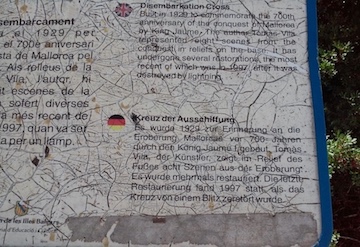 esembarcament
el 1929 per
el 700è aniversari
sta de Mallorca pel
Als relleus de la
Vila, l'autor, hi
it escenes de la
sofert diverses
més recent de
1997, quan va ser
a per un llamp.
Disembarkation Cross
Built in 1929 to commemorate the 700th
anniversary of the conquest of Mallorca
by King Jaume. The author Tomàs Vila,
represented eight scenes from the
conquest in reliefs on the base. It has
undergone several restorations, the most
recent of which was in 1997 after it was
destroyed by lightning.
Kreuz der Ausschiffung
Es wurde 1929 zur Erinnerung an die
Eroberung Mallorcas vor 700 Jahren
durch den König Jaume I gebaut. Tomàs
Vila, der Künstler, zeigt im Relief des
Fußes acht Szenen aus der Eroberung.
Es wurde mehrmals restauriert. Die letzte
Restaurierung fand 1997 statt, als das
Kreuz von einem Blitz zerstört wurde.
de les Illes Balears